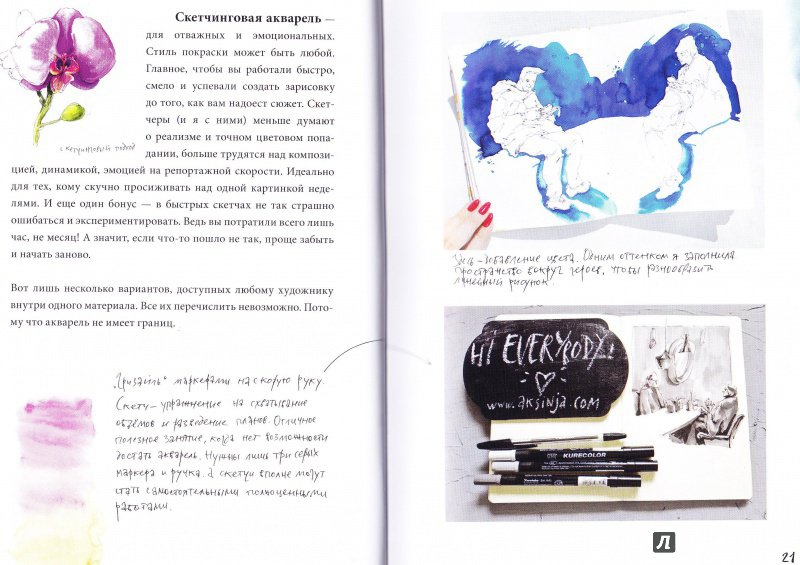 Скетчинговая акварель —
для отважных и эмоциональных.
Стиль покраски может быть любой.
Главное, чтобы вы работали быстро,
смело и успевали создать зарисовку
до того, как вам надоест сюжет. Скет-
черы (и я с ними) меньше думают
о реализме и точном цветовом попа-
дании, больше трудятся над компози-
цией, динамикой, эмоцией на репортажной скорости. Идеально
для тех, кому скучно просиживать над одной картинкой неде-
лями. И еще один бонус — в быстрых скетчах не так страшно
ошибаться и экспериментировать. Ведь вы потратили всего лишь
час, не месяц! А значит, если что-то пошло не так, проще забыть
и начать заново.
скетчинговый подход
Вот лишь несколько вариантов, доступных любому художнику
внутри одного материала. Все их перечислить невозможно. Пото-
му что акварель не имеет границ.
„Гризайль“ маркерами на скорую руку.
Скетч–упражнение на схватывание
объёмов и разведение планов. Отличное
полезное занятие, когда нет возможности
достать акварель. Нужны лишь три серых
маркера и ручка. А скетчи вполне могут
стать самостоятельными полноценными
работами.
добавление цвета. Одним оттенком я заполнила
пространство вокруг героев, чтобы разнообразить
линейный рисунок.
HI EVERYBODY!
www.aksinja.com
KURECOLOR
Л
21